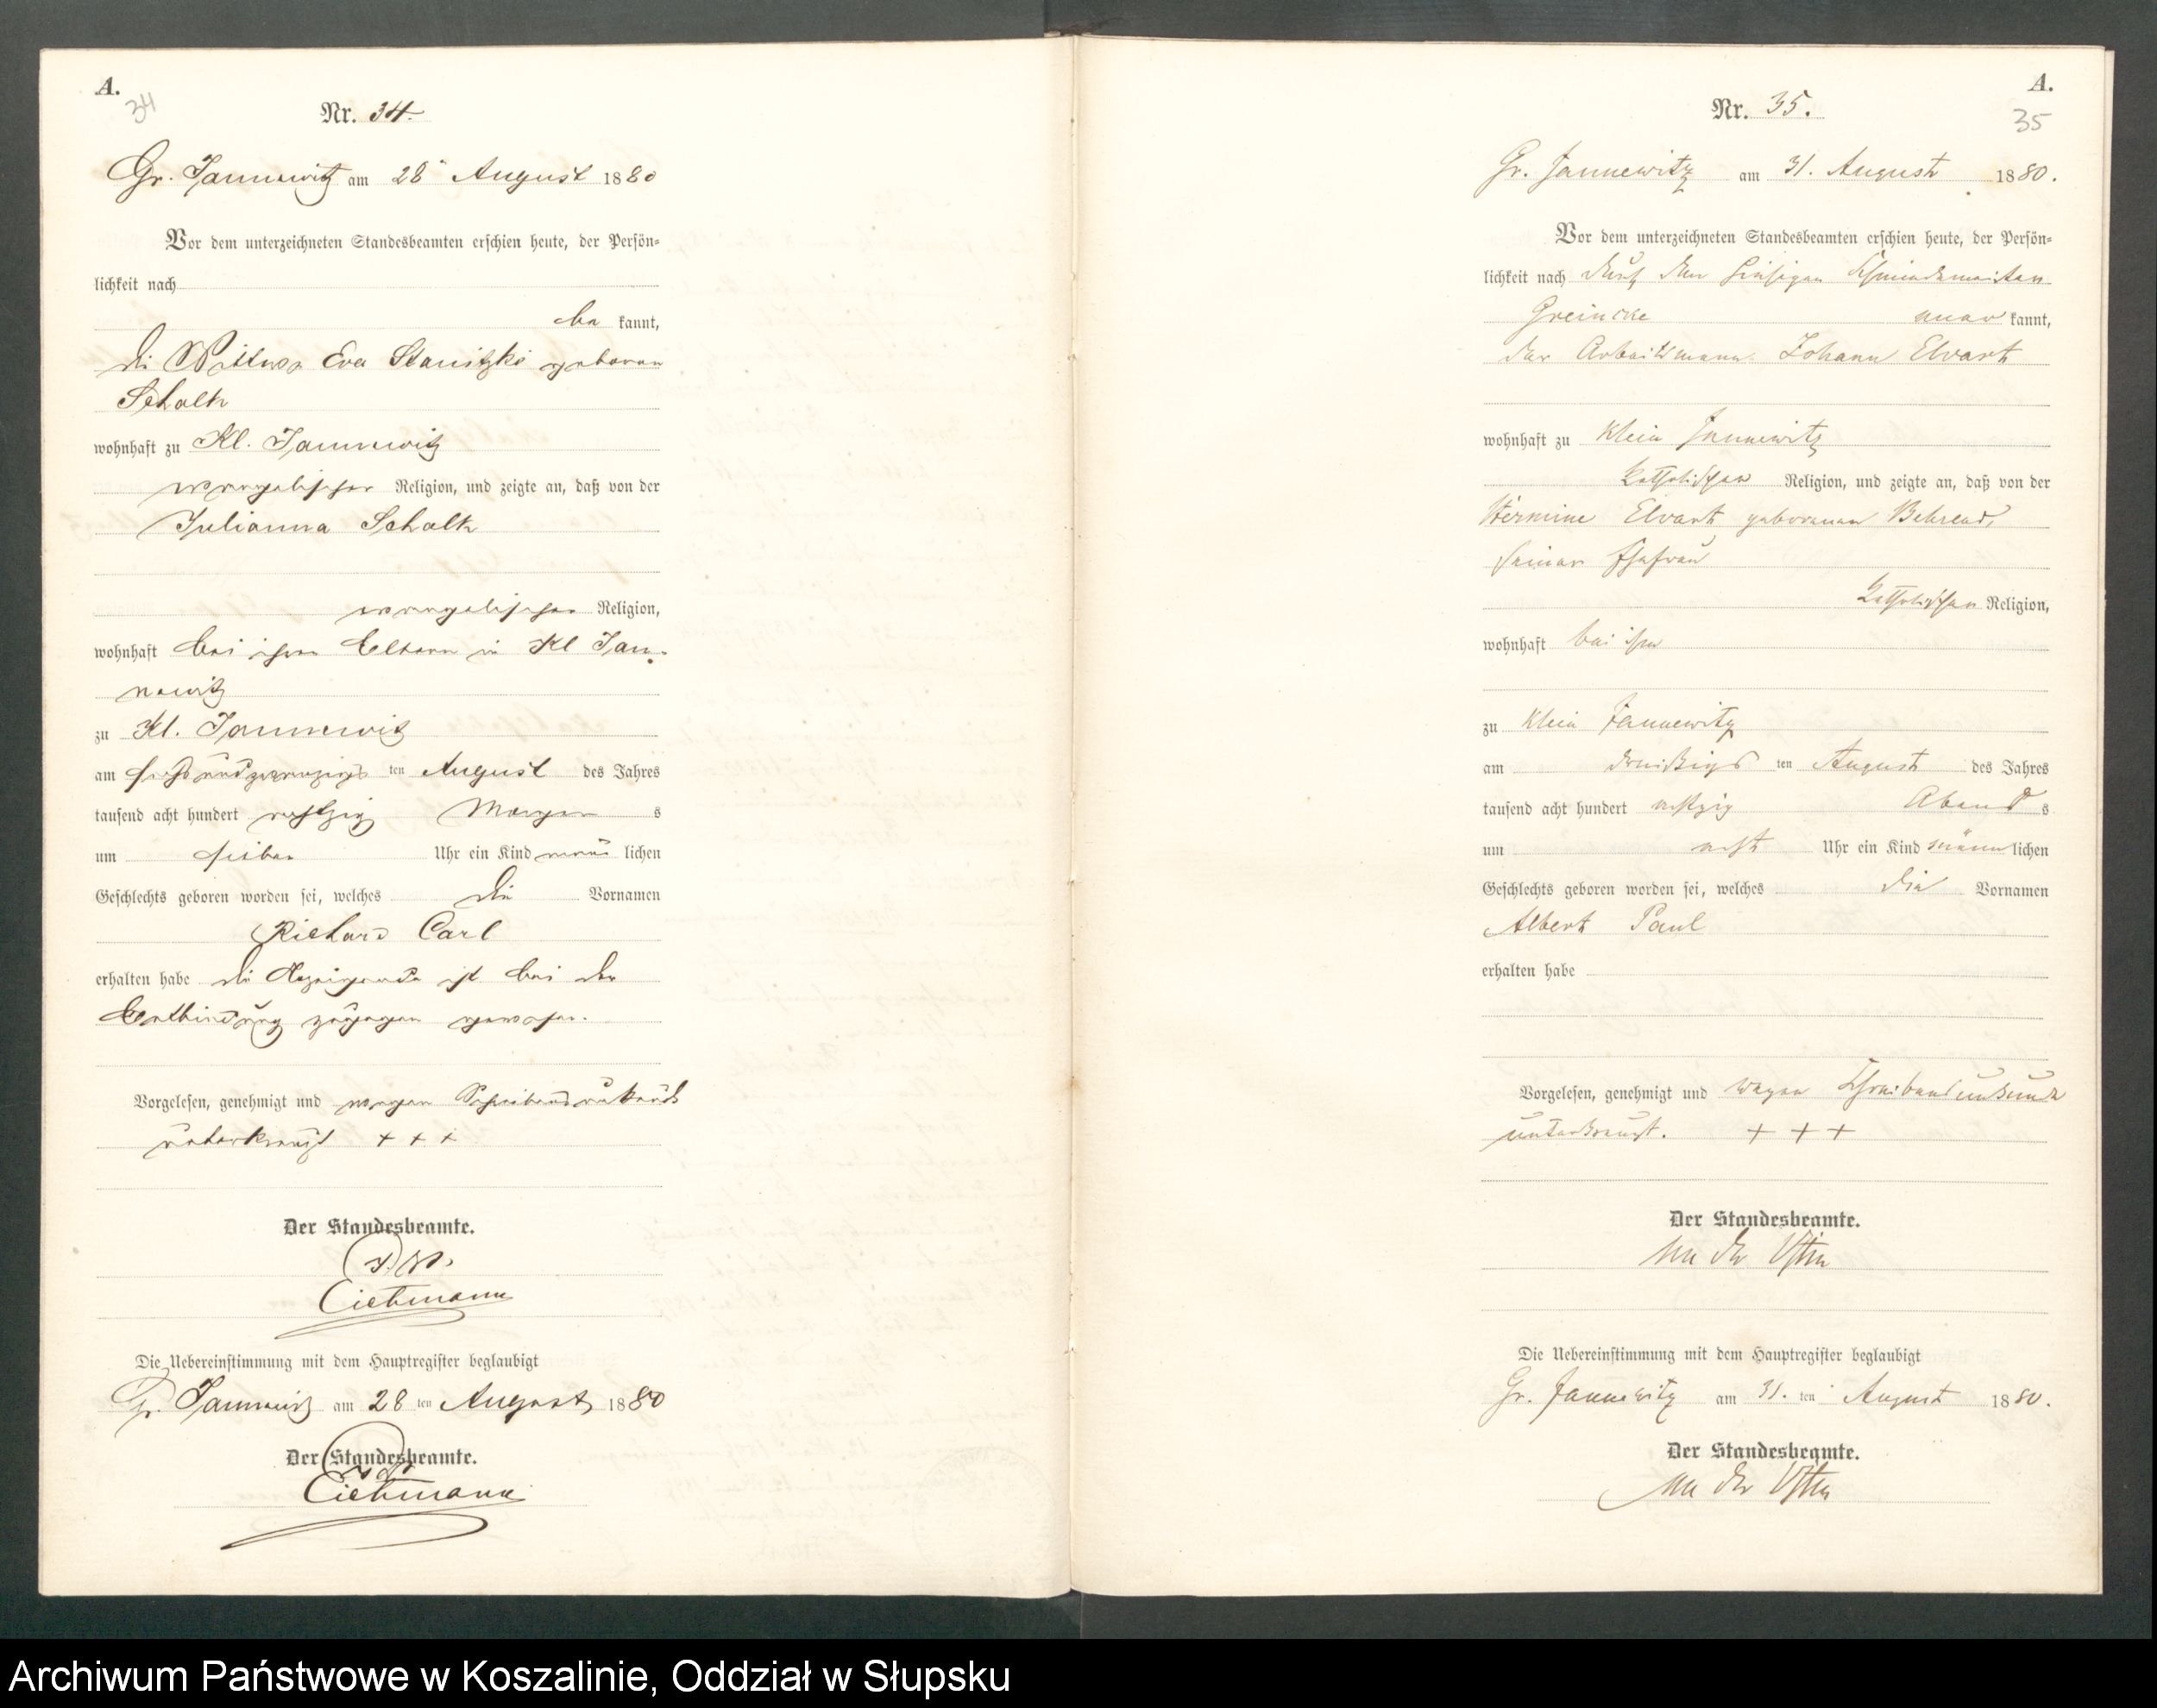 A.
34
Nr. 34.
Gr. Jannewitz am 28 August 1880
Vor dem unterzeichneten Standesbeamten erschien heute, der Persön-
lichkeit nach
be kannt,
die Wittwe Eva Stanitzke geborene
Scholtz
wohnhaft zu Kl. Jannewitz
evangelischer Religion, und zeigte an, daß von der
Julianna Scholtz
evangelischer Religion,
wohnhaft bei ihren Eltern in Kl Jan-
newitz
zu Kl. Jannewitz
am sechsundzwanzigs ten August des Jahres
tausend acht hundert achtzig Morgen s
um sieben Uhr ein Kind männ lichen
Geschlechts geboren worden sei, welches die Vornamen
Richard Carl
erhalten habe die Anzeigende ist bei der
Entbindung zugegen gewesen.
Vorgelesen, genehmigt und wegen Schreibensunkunde
unterkreuzt + + +
Der Standesbeamte.
Die Uebereinstimmung mit dem Hauptregister beglaubigt
Gr. Jannewitz am 28 ten August 1880
Der Standesbeamte.
A.
35
Nr. 35.
Gr. Jannewitz am 31. August 1880.
Vor dem unterzeichneten Standesbeamten erschien heute, der Persön-
lichkeit nach durch den hiesigen Schmiedemeister
Greincke aner kannt,
der Arbeitsmann Johann Elvart
wohnhaft zu Klein Jannewitz
katholischer Religion, und zeigte an, daß von der
Hermine Elvart geborenen Behrend,
seiner Ehefrau
katholischer Religion,
wohnhaft bei ihm
zu Klein Jannewitz
am dreißigs ten August des Jahres
tausend acht hundert achtzig Abend s
um acht Uhr ein Kind männ lichen
Geschlechts geboren worden sei, welches die Vornamen
Albert Paul
erhalten habe
Vorgelesen, genehmigt und wegen Schreibensunkunde
unterkreuzt. + + +
Der Standesbeamte.
Die Uebereinstimmung mit dem Hauptregister beglaubigt
Gr. Jannewitz am 31. ten August 1880.
Der Standesbeamte.
Archiwum Państwowe w Koszalinie, Oddział w Słupsku